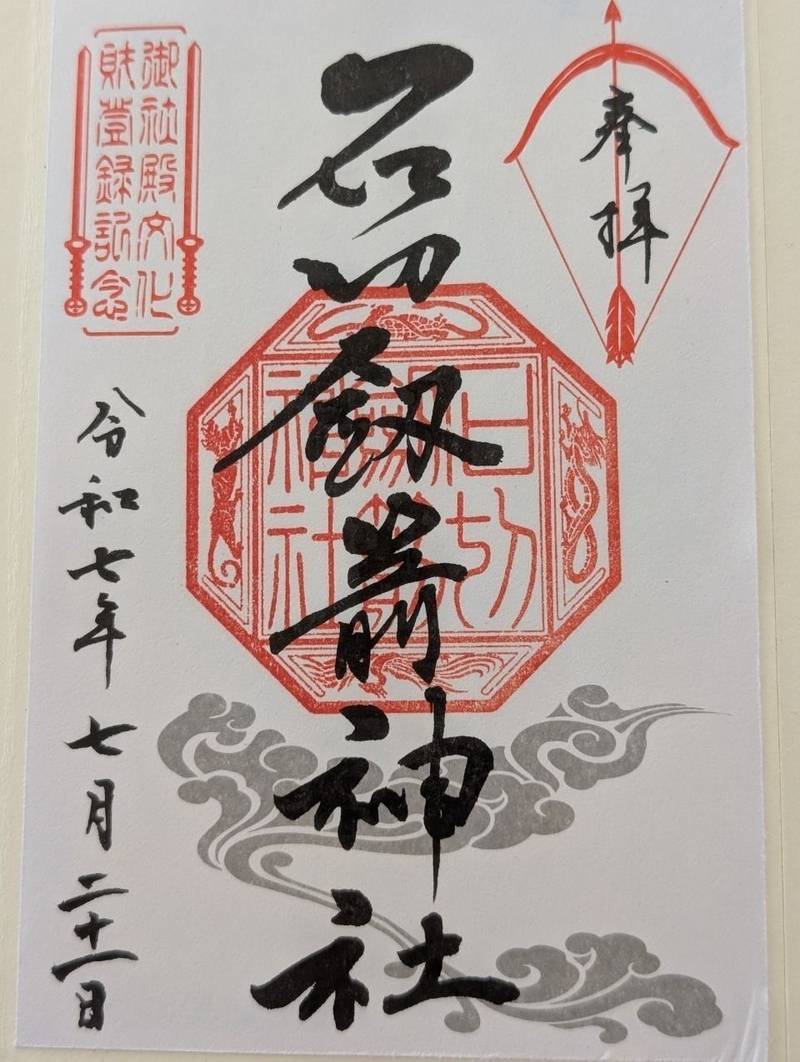 奉拝
石切釼箭神社
石切
神社
御社殿文化
財登録記念
令和七年七月二十一日